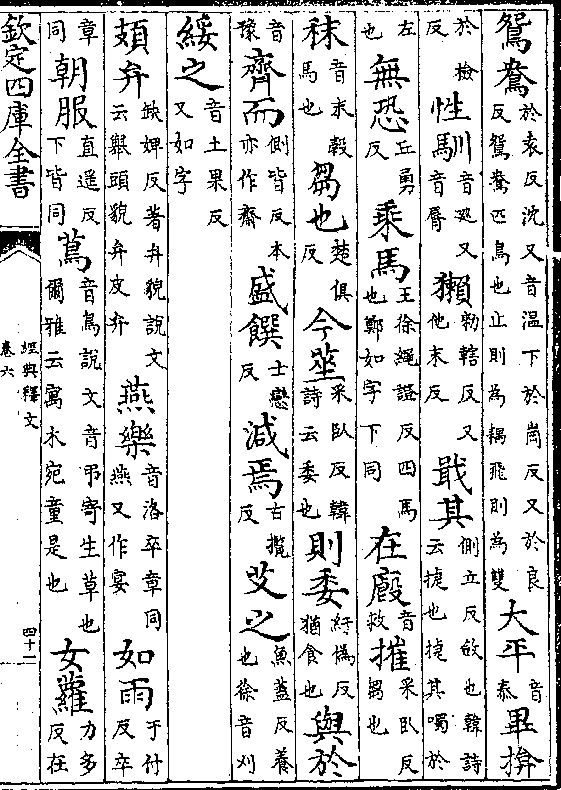 鴛鴦於袁反沈又音溫下於崗反又於良反鴛鴦匹鳥也止則為耦飛則為雙大平音泰畢揜
於檢反性馴音廵又音脣獺勑轄反又他末反戢其側立反㰸也韓詩云捷也捷其噣於
左也無恐丘勇反乘馬王徐繩證反四馬也鄭如字下同在廏音救摧采臥反芻也
秣音末穀馬也芻也楚俱反今莝采臥反韓詩云委也則委紆偽反猶食也與於
音豫齊而側皆反本亦作齋盛饌士戀反減焉古攬反艾之魚蓋反養也徐音刈
綏之音土果反又如字
頍弁缺婢反著弁貌說文云舉頭貌弁皮弁燕樂音洛卒章同燕又作宴如雨于付反卒
章同朝服直遥反下皆同蔦音鳥說文音弔寄生草也爾雅云寓木宛童是也女蘿力多反在
欽定四庫全書
經典釋文
卷六
四十一